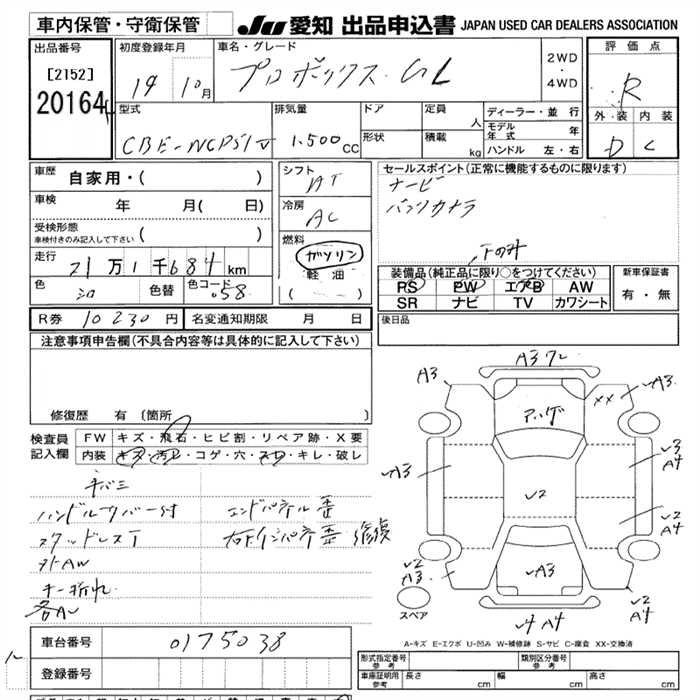 車内保管・守衛保管 JU 愛知 出品申込書 JAPAN USED CAR DEALERS ASSOCIATION
出品番号 初度登録年月 車名・グレード 評価点
[2152] 19年10月 プロボックス・GL 2WD・4WD R
20164 外装 内装
型式 排気量 ドア 定員 人 ディーラー・並行 D C
CBE-NCP51V 1.500cc 形状 積載 kg モデル年式 年
ハンドル 左・右
車歴 自家用・( ) シフト AT セールスポイント(正常に機能するものに限ります)
車検 年 月( 日) 冷房 AC ナービ
受検形態 車検付きのみ記入して下さい ( ) バックカメラ
燃料 ガソリン
走行 21万1千684km 軽油 装備品(純正品に限り○をつけてください) 新車保証書
色 シロ 色替 色コード 058 ( ) PS PW エアB AW 有・無
SR ナビ TV カワシート
R券 10230円 名変通知期限 月 日 後日品
注意事項申告欄(不具合内容等は具体的に記入して下さい)
修復歴 有 (箇所
検査員 FW キズ・飛石・ヒビ割・リペア跡・X要
記入欄 内装 キズ・汚レ・コゲ・穴・スレ・キレ・破レ
A3 A3 ワレ
XX A3
アゲ
A3 V3 A4
V2 V2 A4
V2 A3 A3 V2 A4
スペア V4 A4
ハンドルカバー付 エンドパネル歪
スタッドレスT 右Rインパネ歪 修復
外AW
キー折れ
各A
A-キズ E-エクボ U-凹み W-補修跡 S-サビ C-腐食 XX-交換済
車台番号 0175038
登録番号
形式指定番号 参考 類別区分番号 参考
車庫証明用 参考 長さ cm 幅 cm 高さ cm